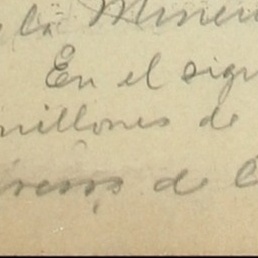 la Miner
En el sig
millones de
de C